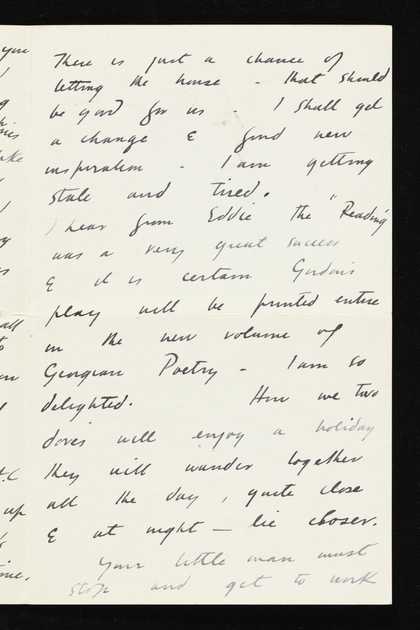 There is just a chance of
letting the house - that should
be good for us - I shall get
a change & find new
inspiration - I am getting
stale and tired.
I hear from Eddie the "Reading"
was a very great success
& it is certain Gordon's
play will be printed entire
in the new volume of
Georgian Poetry - I am so
delighted. How we two
doves will enjoy a holiday
they will wander together
all the day, quite close
& at night - lie closer.
Your little man must
stop and get to work